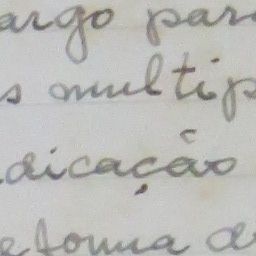 argo para
s multip
dicação
e forma d